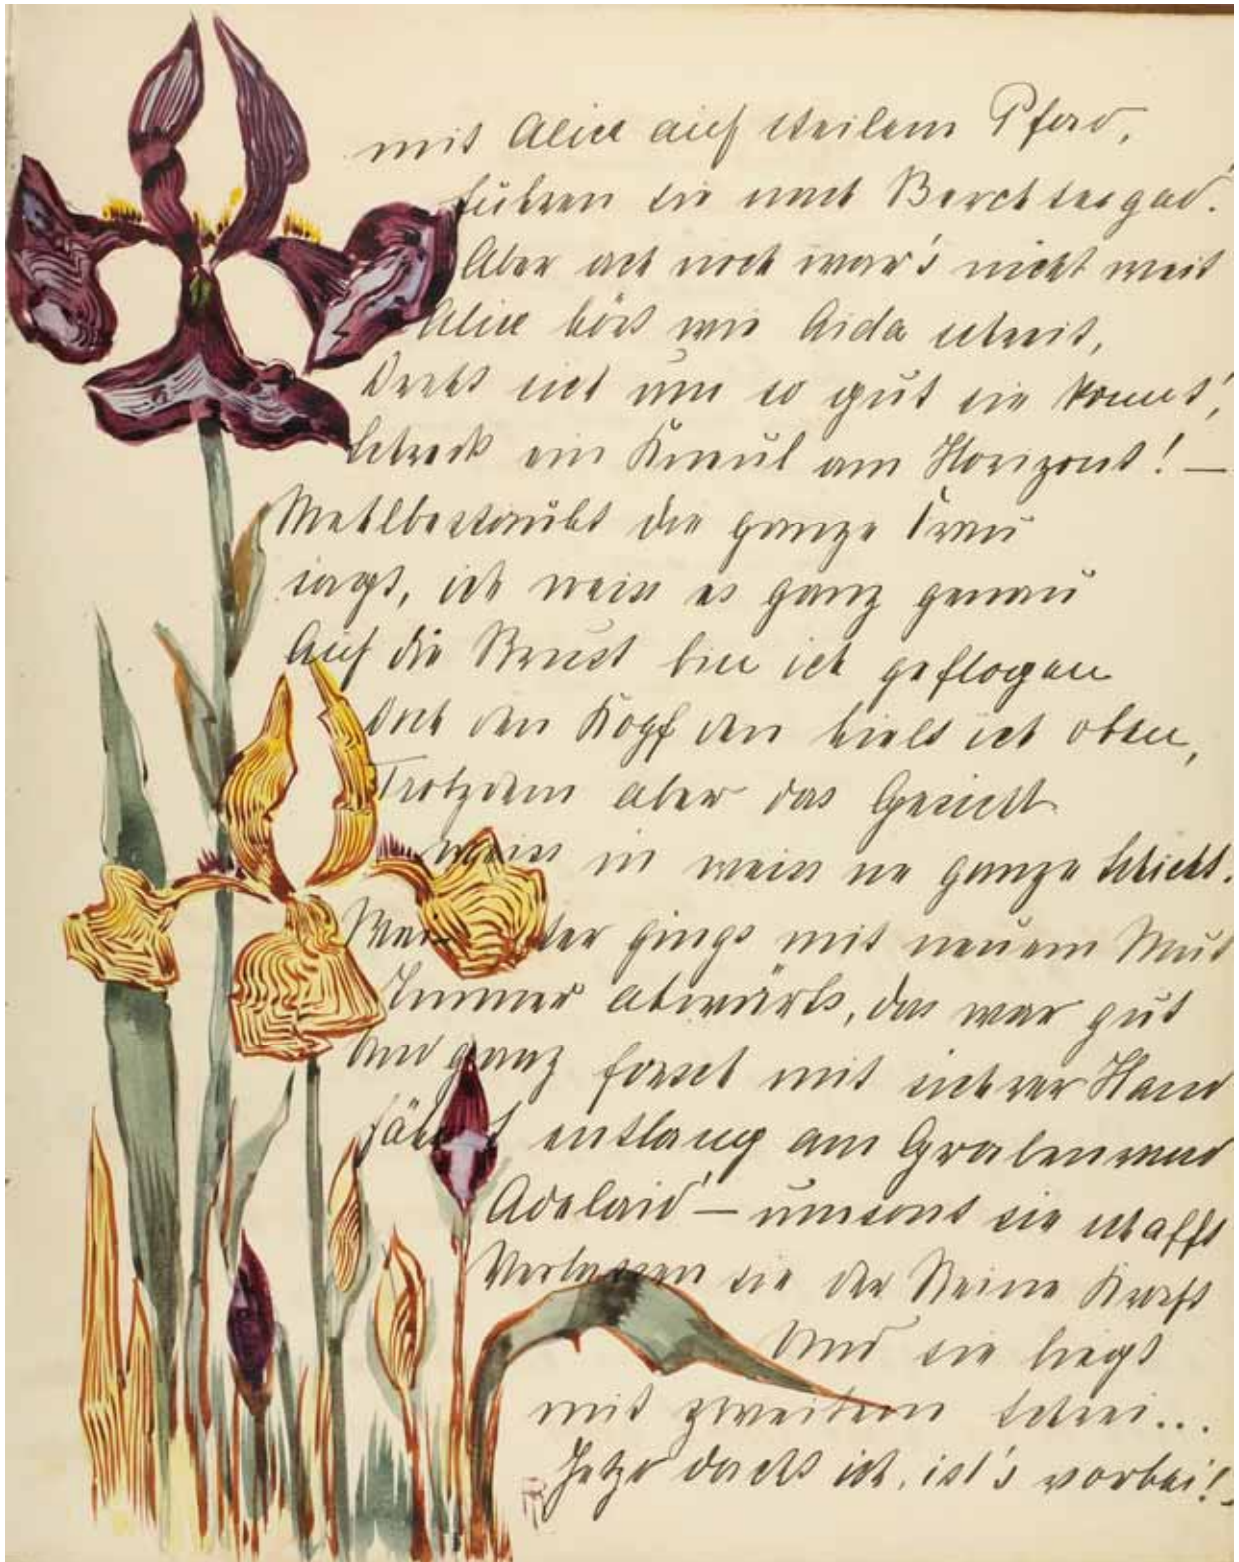 mit Alice auf steilem Pferd,
fuhren sie nach Berchtesgad'.
Aber ach noch war's nicht weit
Alice hört wie Aida schreit,
Dreht sich um so gut sie konnt',
Schreck ein Knäul am Horizont! —
Mehlbestaubt die ganze Frau
sagt, ich weiss es ganz genau
Auf die Brust bin ich geflogen
Doch den Kopf den hielt ich oben,
Trotzdem aber das Gesicht
weiss in weiss ne ganze Schicht.
gings mit neuem Mut
Immer abwärts, das war gut
Und ganz forsch mit sichrer Hand
fährt entlang am Grabenrand
Adelaid' — umsonst sie schafft
Verlassen sie der Beine Kraft
Und sie liegt
mit zweitem Schrei...
Jetzt dacht ich, ist's vorbei!